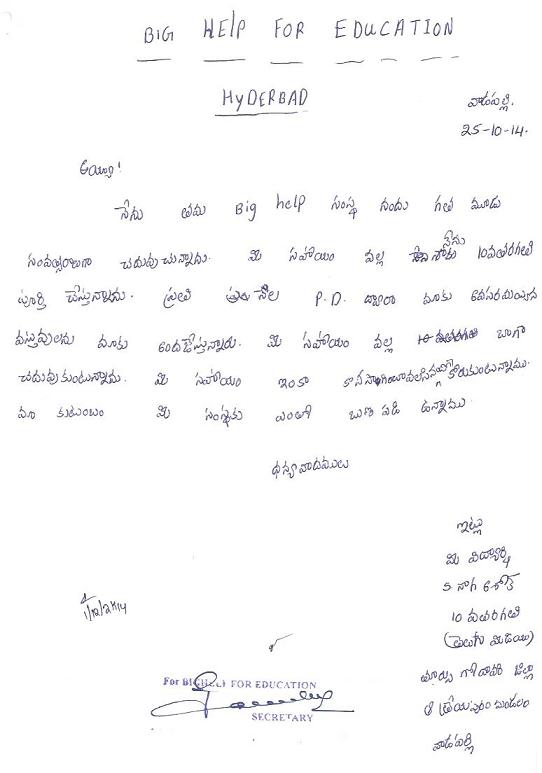 BIG HELP FOR EDUCATION
HyDERBAD
వాడపల్లి.
25-10-14.
అయ్యా!
నేను తమ Big help సంస్థ నందు గత మూడు
సంవత్సరాలుగా చదువు చున్నాను. మీ సహాయం వల్ల నేను 10వతరగతి
పూర్తి చేస్తున్నాను. ప్రతి నెల P.D. ద్వారా మాకు అవసరమయిన
వస్తువులను మాకు అందజేస్తున్నారు. మీ సహాయం వల్ల బాగా
చదువుకుంటున్నాను. మీ సహాయం ఇంకా కోరుకుంటున్నాము.
మా కుటుంబం మీ సంస్థకు ఎంతో ఋణ పడి ఉన్నాము.
ధన్యవాదములు
ఇట్లు
మీ విద్యార్థి
నాగ అశోక్
10 వతరగతి
(తెలుగు మీడియం)
తూర్పు గోదావరి జిల్లా
ఆత్రేయపురం మండలం
వాడపల్లి
1/12/2014
For BIG HELP FOR EDUCATION
SECRETARY